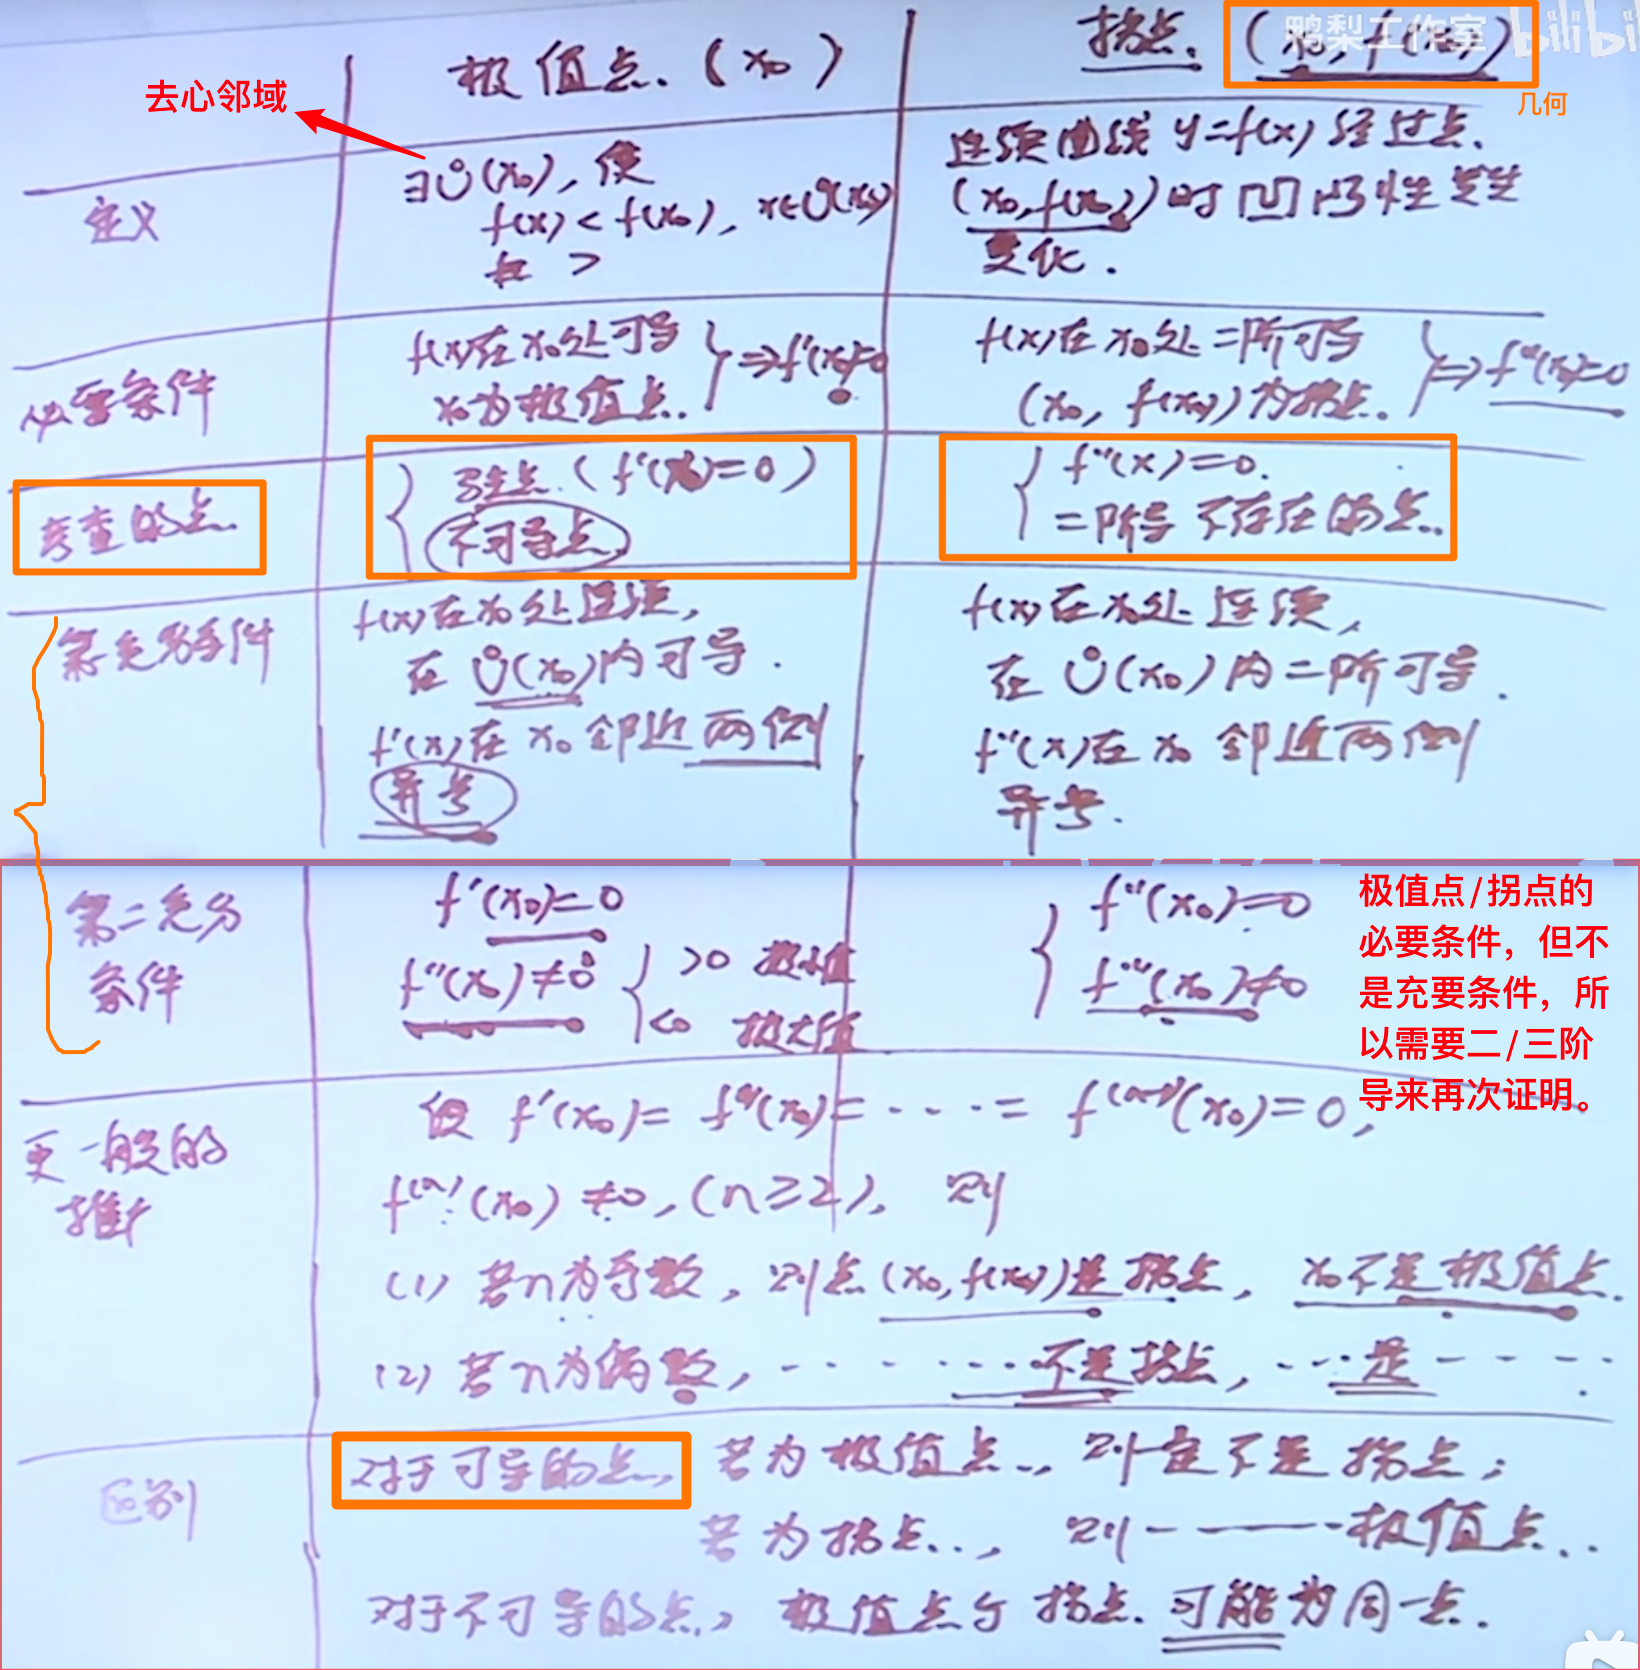 鸭梨工作室 bilibili
极值点.(x₀)
拐点. (x₀, f(x₀))
几何
去心邻域
定义
∃Ů(x₀), 使
f(x) < f(x₀), x∈Ů(x₀)
或 >
连续曲线 y=f(x) 经过点.
(x₀, f(x₀)) 时凹凸性发生
变化.
必要条件
f(x)在x₀处可导
x₀为极值点.
} ⇒ f'(x₀)=0
f(x)在x₀处二阶可导
(x₀, f(x₀))为拐点.
} ⇒ f''(x₀)=0
考查的点.
{ 驻点.(f'(x)=0)
不可导点.
{ f''(x)=0.
二阶导不存在的点.
第一充分条件
f(x)在x₀处连续,
在Ů(x₀)内可导.
f'(x)在x₀邻近两侧
异号
f(x)在x₀处连续,
在Ů(x₀)内二阶可导.
f''(x)在x₀邻近两侧
异号.
第二充分
条件
f'(x₀)=0
f''(x₀)≠0 { >0 极小值
<0 极大值
{ f''(x₀)=0
f'''(x₀)≠0
极值点/拐点的
必要条件，但不
是充要条件，所
以需要二/三阶
导来再次证明。
更一般的
推广
设 f'(x₀)=f''(x₀)=····=f⁽ⁿ⁻¹⁾(x₀)=0,
f⁽ⁿ⁾(x₀)≠0, (n≥2), 则
(1) 若n为奇数, 则点(x₀, f(x₀))是拐点, x₀不是极值点.
(2) 若n为偶数, ········不是拐点, ···是----
区别
对于可导的点, 若为极值点.., 则一定不是拐点;
若为拐点..., 则————极值点..
对于不可导的点, 极值点与拐点.可能为同一点.